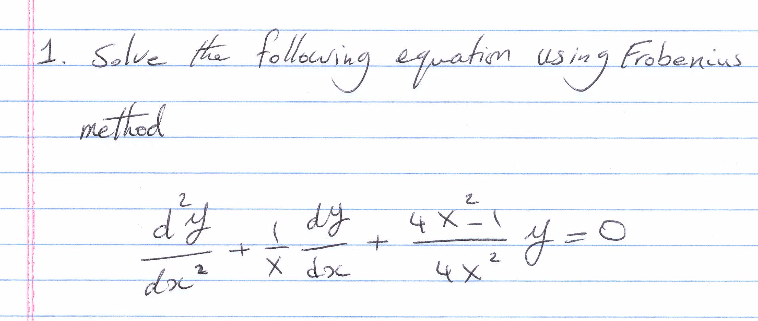 1. Solve the following equation using Frobenius
method
d²y/dx² + 1/x dy/dx + (4x²-1)/(4x²) y = 0